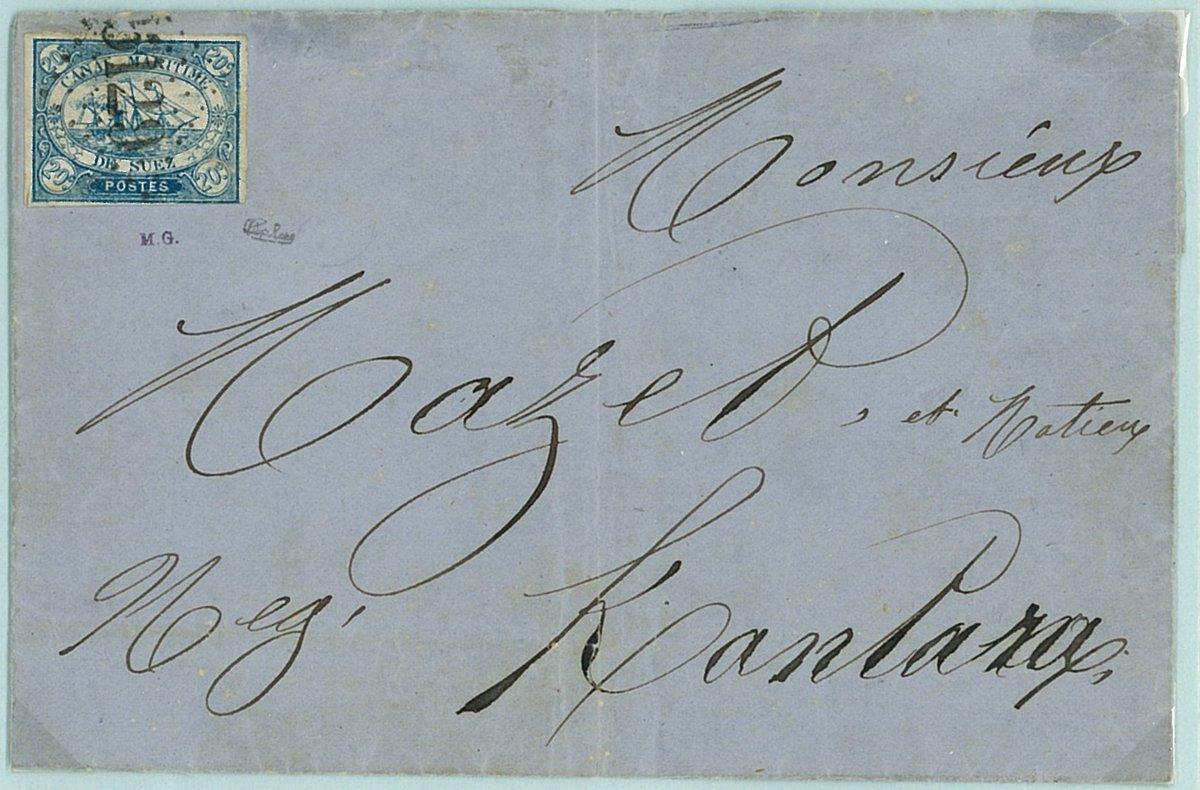 20c 20c
CANAL MARITIME
DE SUEZ
20c 20c
POSTES
5129
M.G.
Monsieur
Mazet, et Matieux
Neg.
Kantara